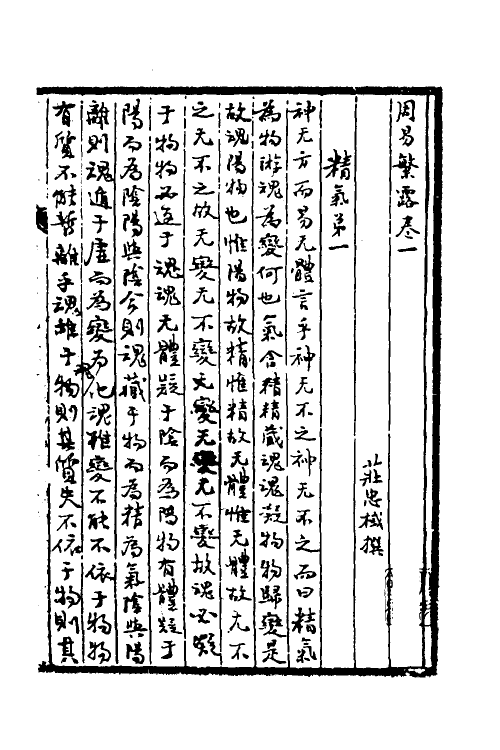 周易繁露卷一
莊忠棫撰
精氣第一
神无方而易无體言乎神无不之神无不之而曰精氣
為物游魂為變何也氣含精精藏魂魂凝物物歸變是
故魂陽物也惟陽物故精惟精故无體惟无體故无不
之无不之故无變无不變无變无變无不變故魂必凝
于物物而麗于魂魂无體凝于陰而為陽物有體凝于
陽而為陰陽與陰合則魂藏乎物而為精為氣陰與陽
離則魂遁于虛而為變為他魂雖變不能不依于物物
有質不能暫離乎魂魂離于物則其質失不依于物則其